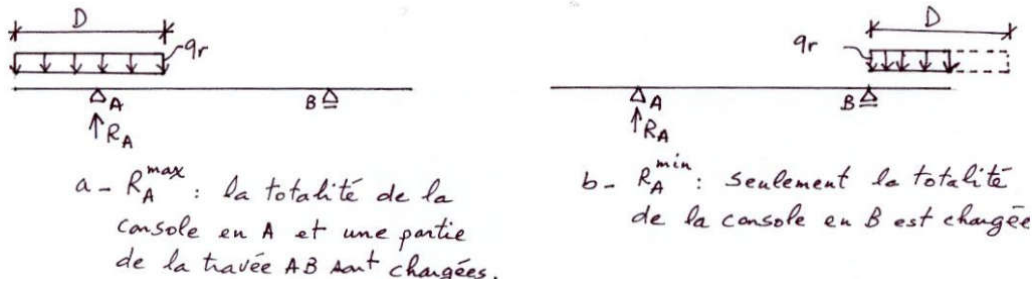 D
qr
A
B
RA
a - RA max : la totalité de la
console en A et une partie
de la travée AB sont chargées.
D
qr
A
B
RA
b - RA min : seulement la totalité
de la console en B est chargée